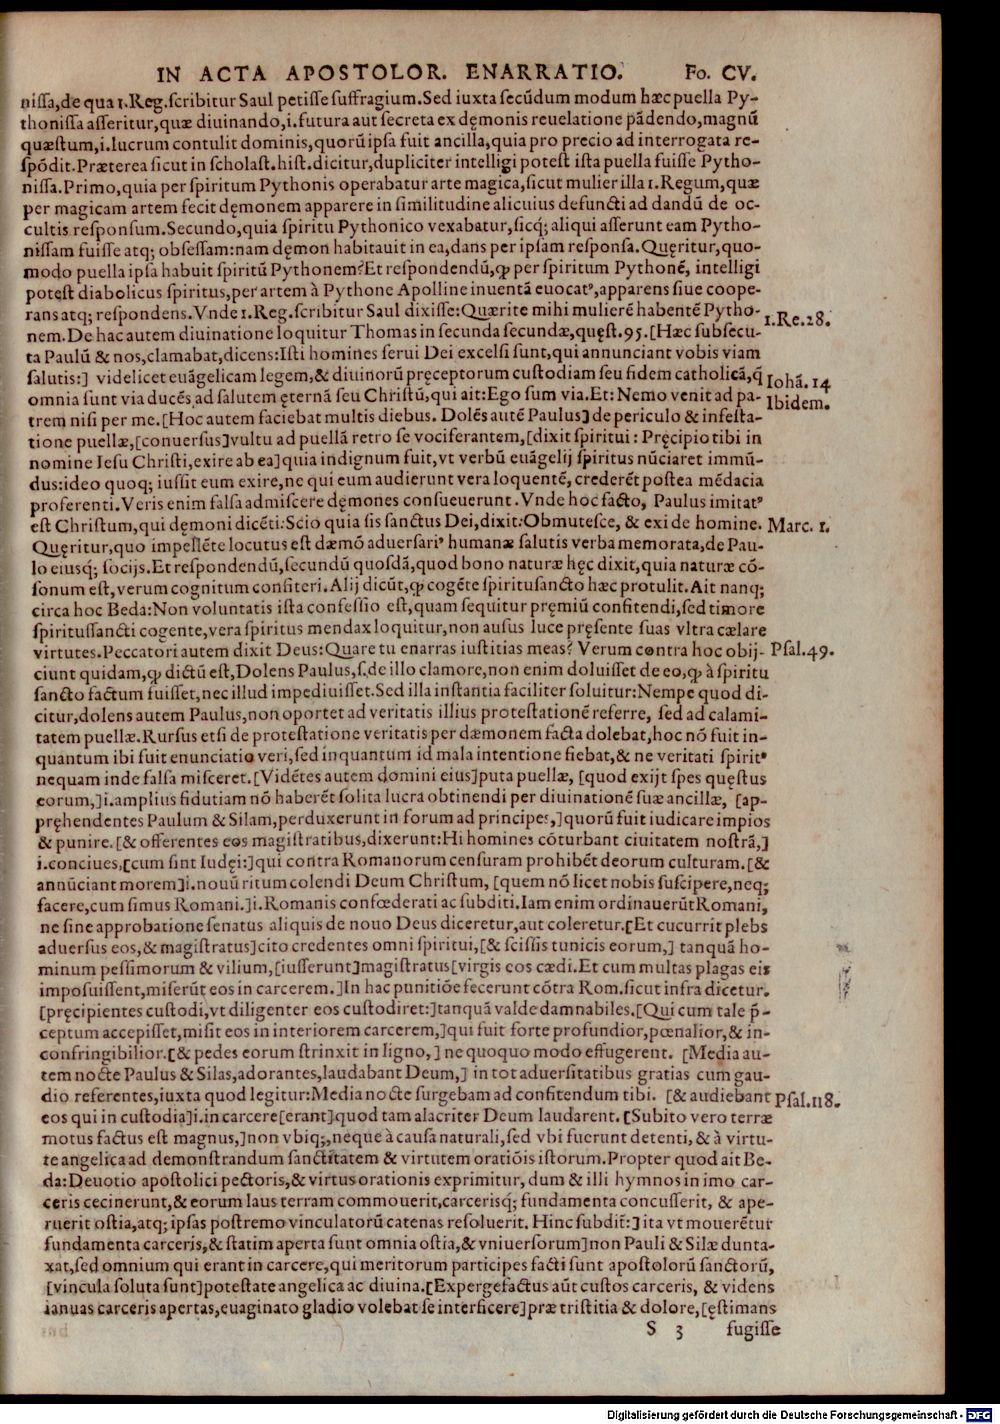 IN ACTA APOSTOLOR. ENARRATIO. Fo. CV.
niſſa,de qua 1.Reg.ſcribitur Saul petiſſe ſuffragium.Sed iuxta ſecūdum modum hæc puella Py-
thoniſſa aſſeritur,quæ diuinando,i.futura aut ſecreta ex dęmonis reuelatione pādendo,magnū
quæſtum,i.lucrum contulit dominis,quorū ipſa fuit ancilla,quia pro precio ad interrogata re-
ſpōdit.Præterea ſicut in ſcholaſt.hiſt.dicitur,dupliciter intelligi poteſt iſta puella fuiſſe Pytho-
niſſa.Primo,quia per ſpiritum Pythonis operabatur arte magica,ſicut mulier illa 1.Regum,quæ
per magicam artem fecit dęmonem apparere in ſimilitudine alicuius defuncti ad dandū de oc-
cultis reſponſum.Secundo,quia ſpiritu Pythonico vexabatur,ſicq; aliqui aſſerunt eam Pytho-
niſſam fuiſſe atq; obſeſſam:nam dęmon habitauit in ea,dans per ipſam reſponſa.Quęritur,quo-
modo puella ipſa habuit ſpiritū Pythonem?Et reſpondendū,ꝙ per ſpiritum Pythonē, intelligi
poteſt diabolicus ſpiritus,per artem à Pythone Apolline inuentā euocatꝰ,apparens ſiue coope-
rans atq; reſpondens.Vnde 1.Reg.ſcribitur Saul dixiſſe:Quærite mihi mulierē habentē Pytho-
1.Re.28.
nem.De hac autem diuinatione loquitur Thomas in ſecunda ſecundæ,quęſt.95.[Hæc ſubſecu-
ta Paulū & nos,clamabat,dicens:Iſti homines ſerui Dei excelſi ſunt,qui annunciant vobis viam
ſalutis:] videlicet euāgelicam legem,& diuinorū pręceptorum cuſtodiam ſeu fidem catholicā,q̄
Iohā. 14
omnia ſunt via ducēs ad ſalutem ęternā ſeu Chriſtū,qui ait:Ego ſum via.Et:Nemo venit ad pa-
Ibidem.
trem niſi per me.[Hoc autem faciebat multis diebus. Dolēs autē Paulus] de periculo & infeſta-
tione puellæ,[conuerſus]vultu ad puellā retro ſe vociferantem,[dixit ſpiritui: Pręcipio tibi in
nomine Ieſu Chriſti,exire ab ea]quia indignum fuit,vt verbū euāgelij ſpiritus nūciaret immū-
dus:ideo quoq; iuſſit eum exire,ne qui eum audierunt vera loquentē, crederēt poſtea mēdacia
proferenti.Veris enim falſa admiſcere dęmones conſueuerunt.Vnde hoc facto, Paulus imitatꝰ
eſt Chriſtum,qui dęmoni dicēti:Scio quia ſis ſanctus Dei,dixit:Obmuteſce, & exi de homine.
Marc. 1.
Quęritur,quo impellēte locutus eſt dæmō aduerſariꝰ humanæ ſalutis verba memorata,de Pau-
lo eiusq; ſocijs.Et reſpondendū,ſecundū quoſdā,quod bono naturæ hęc dixit,quia naturæ cō-
ſonum eſt,verum cognitum confiteri.Alij dicūt,ꝙ cogēte ſpirituſancto hæc protulit.Ait nanq;
circa hoc Beda:Non voluntatis iſta confeſſio eſt,quam ſequitur pręmiū confitendi,ſed timore
ſpirituſſancti cogente,vera ſpiritus mendax loquitur,non auſus luce pręſente ſuas vltra cælare
virtutes.Peccatori autem dixit Deus:Quare tu enarras iuſtitias meas? Verum contra hoc obij-
Pſal.49.
ciunt quidam,ꝙ dictū eſt,Dolens Paulus,ſ.de illo clamore,non enim doluiſſet de eo,ꝙ à ſpiritu
ſancto factum fuiſſet,nec illud impediuiſſet.Sed illa inſtantia faciliter ſoluitur:Nempe quod di-
citur,dolens autem Paulus,non oportet ad veritatis illius proteſtationē referre, ſed ad calami-
tatem puellæ.Rurſus etſi de proteſtatione veritatis per dæmonem facta dolebat,hoc nō fuit in-
quantum ibi fuit enunciatio veri,ſed inquantum id mala intentione fiebat,& ne veritati ſpiritꝰ
nequam inde falſa miſceret.[Vidētes autem domini eius]puta puellæ, [quod exijt ſpes quęſtus
eorum,]i.amplius fidutiam nō haberēt ſolita lucra obtinendi per diuinationē ſuæ ancillæ, [ap-
pręhendentes Paulum & Silam,perduxerunt in forum ad principes,]quorū fuit iudicare impios
& punire.[& offerentes eos magiſtratibus,dixerunt:Hi homines cōturbant ciuitatem noſtrā,]
i.conciues,[cum ſint Iudęi:]qui contra Romanorum cenſuram prohibēt deorum culturam.[&
annūciant morem]i.nouū ritum colendi Deum Chriſtum, [quem nō licet nobis ſuſcipere,neq;
facere,cum ſimus Romani.]i.Romanis confœderati ac ſubditi.Iam enim ordinauerūtRomani,
ne ſine approbatione ſenatus aliquis de nouo Deus diceretur,aut coleretur.[Et cucurrit plebs
aduerſus eos,& magiſtratus]cito credentes omni ſpiritui,[& ſciſſis tunicis eorum,] tanquā ho-
minum peſſimorum & vilium,[iuſſerunt]magiſtratus[virgis eos cædi.Et cum multas plagas eis
impoſuiſſent,miſerūt eos in carcerem.]In hac punitiōe fecerunt cōtra Rom.ſicut infra dicetur.
[pręcipientes cuſtodi,vt diligenter eos cuſtodiret:]tanquā valde damnabiles.[Qui cum tale p̄-
ceptum accepiſſet,miſit eos in interiorem carcerem,]qui fuit forte profundior,pœnalior,& in-
confringibilior.[& pedes eorum ſtrinxit in ligno,] ne quoquo modo effugerent. [Media au-
tem nocte Paulus & Silas,adorantes,laudabant Deum,] in tot aduerſitatibus gratias cum gau-
dio referentes,iuxta quod legitur:Media nocte ſurgebam ad confitendum tibi. [& audiebant
Pſal.118.
eos qui in cuſtodia]i.in carcere[erant]quod tam alacriter Deum laudarent.[Subito vero terræ
motus factus eſt magnus,]non vbiq;,neque à cauſa naturali,ſed vbi fuerunt detenti,& à virtu-
te angelica ad demonſtrandum ſanctitatem & virtutem oratiōis iſtorum.Propter quod ait Be-
da:Deuotio apoſtolici pectoris,& virtus orationis exprimitur, dum & illi hymnos in imo car-
ceris cecinerunt,& eorum laus terram commouerit,carcerisq; fundamenta concuſſerit, & ape-
ruerit oſtia,atq; ipſas poſtremo vinculatorū catenas reſoluerit. Hinc ſubdit:]ita vt mouerētur
fundamenta carceris,& ſtatim aperta ſunt omnia oſtia,& vniuerſorum]non Pauli & Silæ dunta-
xat,ſed omnium qui erant in carcere,qui meritorum participes facti ſunt apoſtolorū ſanctorū,
[vincula ſoluta ſunt]poteſtate angelica ac diuina.[Expergefactus aūt cuſtos carceris, & videns
ianuas carceris apertas,euaginato gladio volebat ſe interficere]præ triſtitia & dolore,[ęſtimans
S 3 fugiſſe
Digitalisierung gefördert durch die Deutsche Forschungsgemeinschaft - DFG